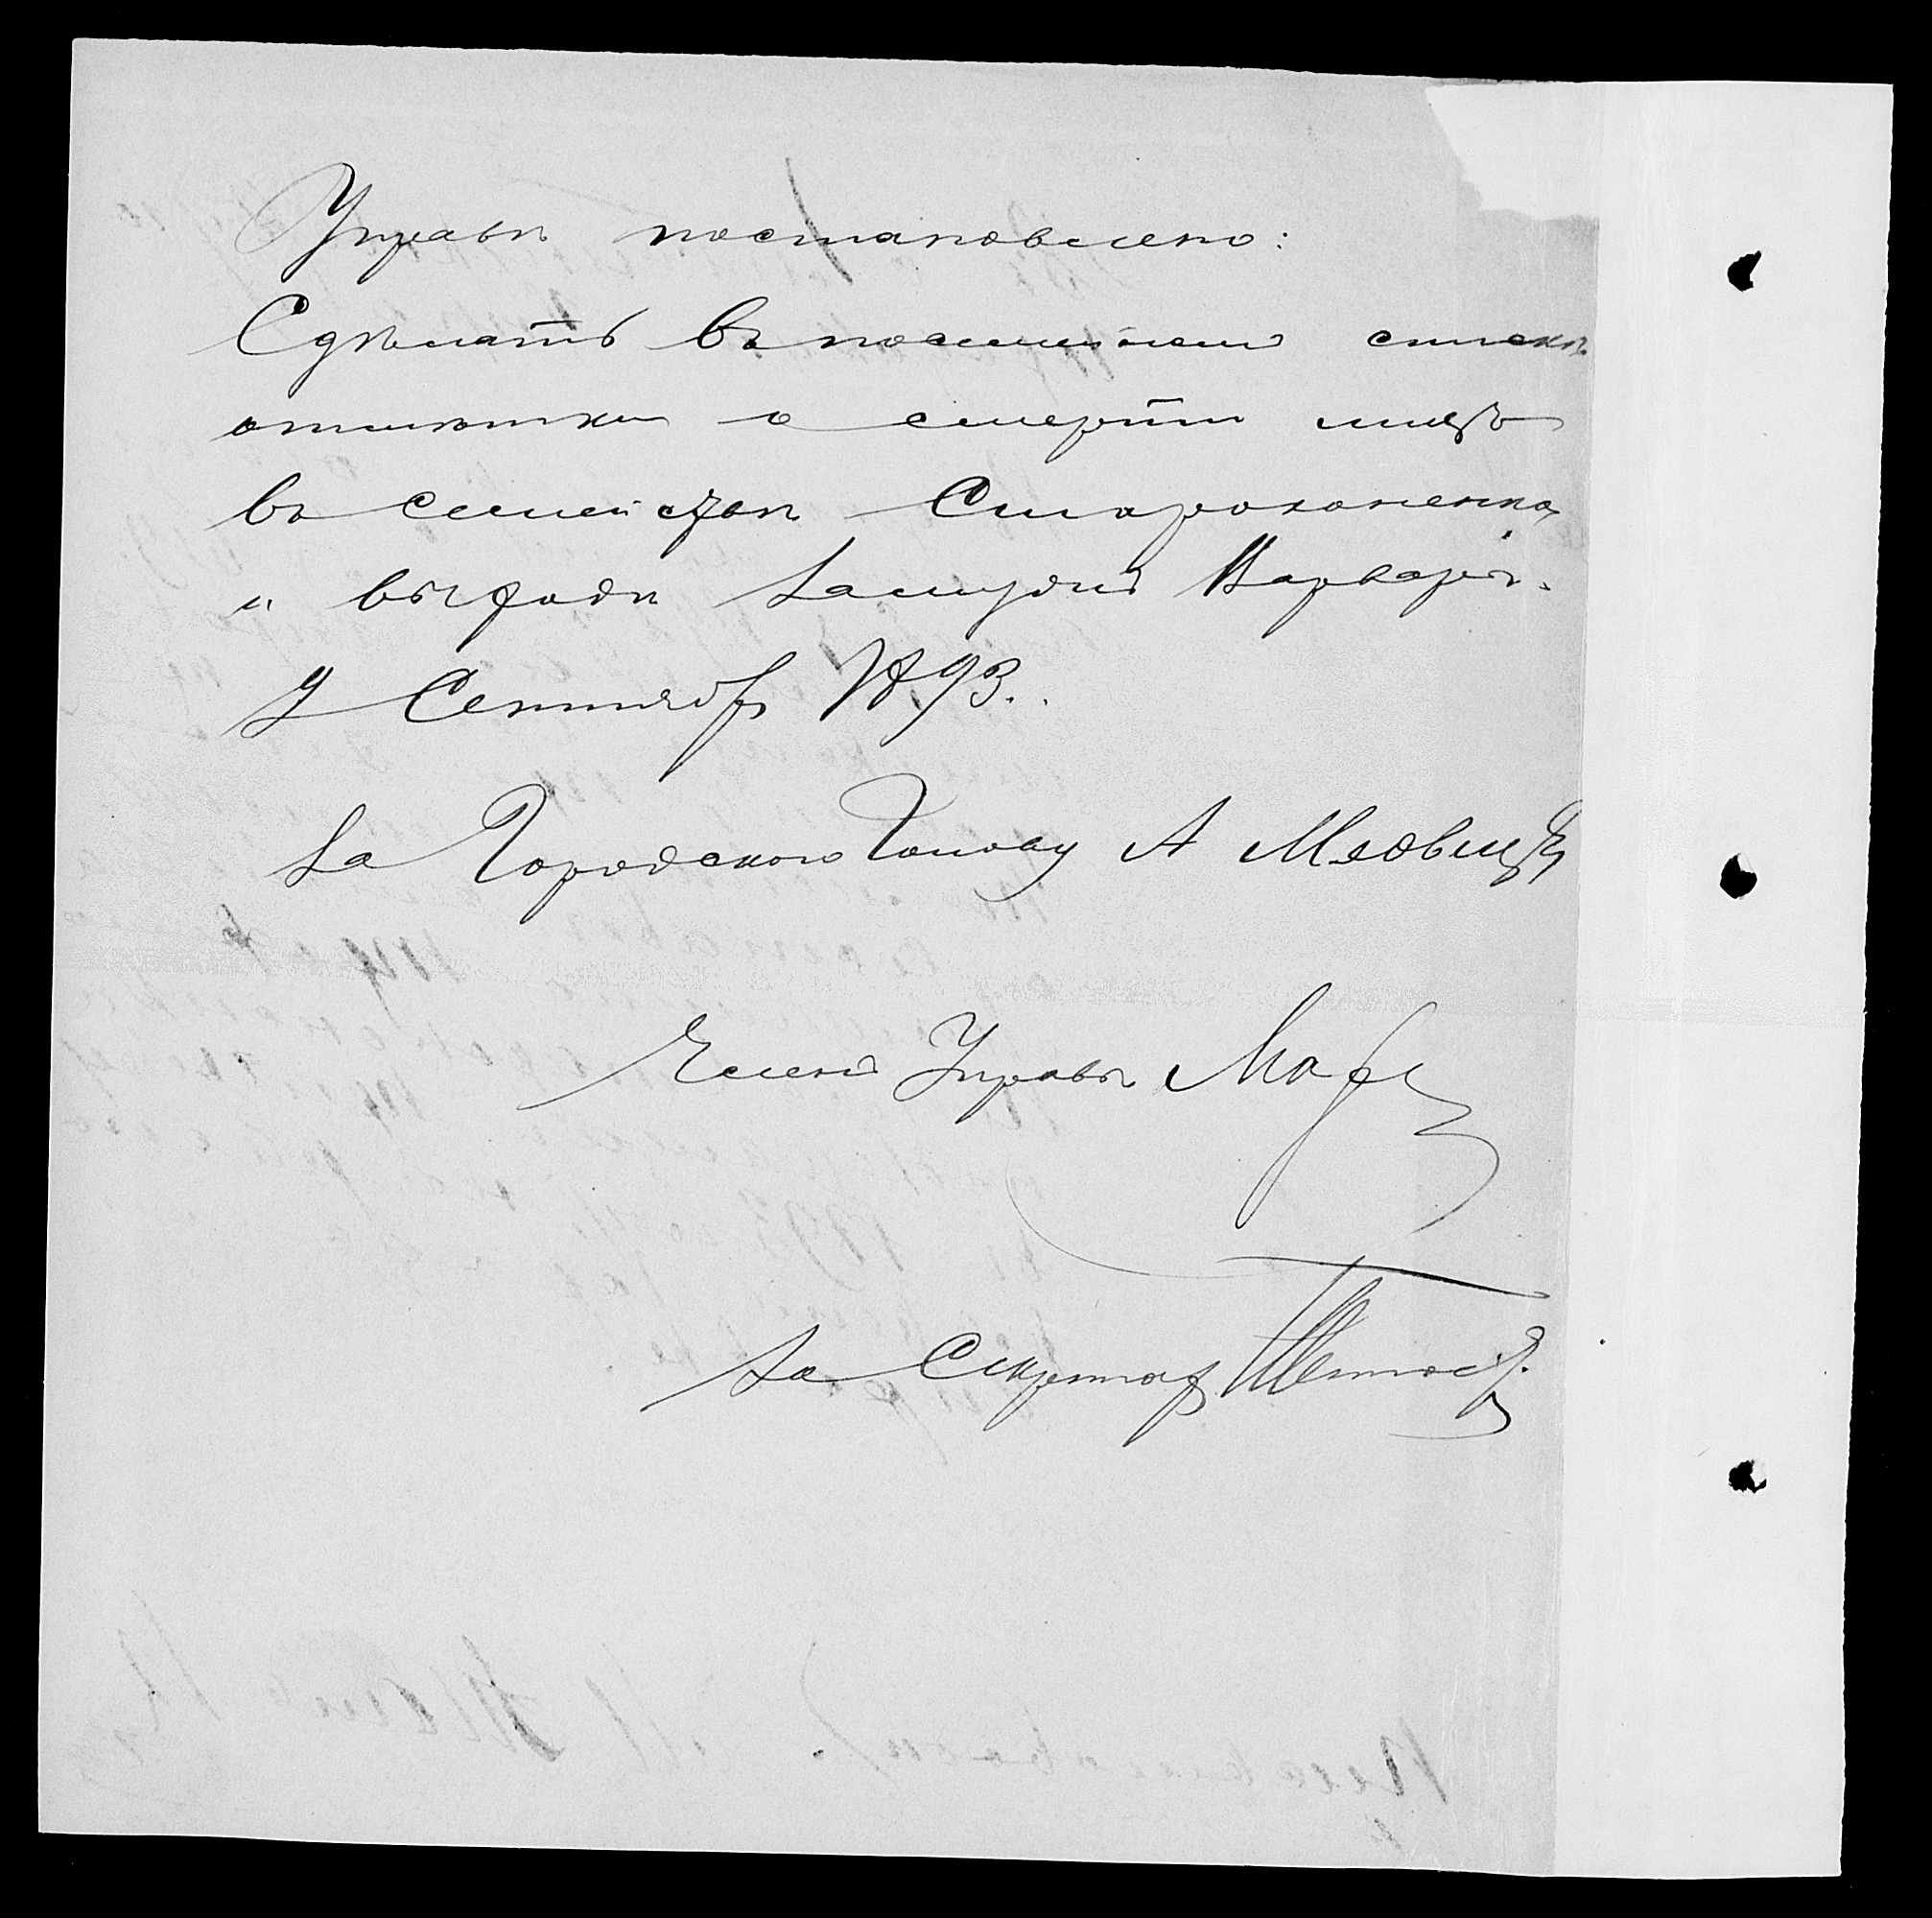 Управѣ постановлено:
Сдѣлать въ посемейномъ спискѣ
отмѣтки о смерти лицъ
въ семействѣ Старокоженко
и выходѣ замужъ Варвары.
9 Сентября 1893.
За Городского Голову А
Членъ Управы
За Секретаря